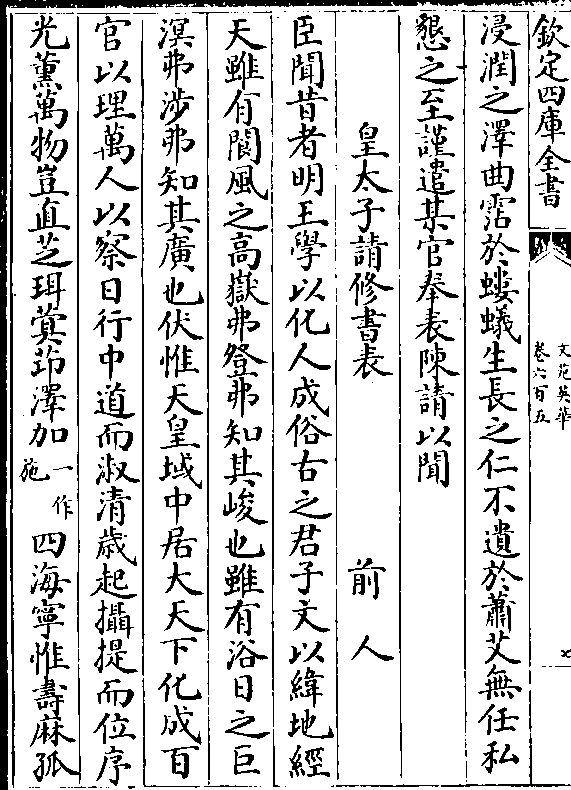 欽定四庫全書
文苑英華
卷六百五
浸潤之澤曲霑於螻蟻生長之仁不遺於蕭艾無任私
懇之至謹遣某官奉表陳請以聞
皇太子請修書表 前人
臣聞昔者明王學以化人成俗古之君子文以緯地經
天雖有閬風之高嶽弗登弗知其峻也雖有浴日之巨
溟弗涉弗知其廣也伏惟天皇域中居大天下化成百
官以理萬人以察日行中道而淑清歲起攝提而位序
光薰萬物豈直芝珥蓂莭澤加一作施四海寧惟壽麻孤